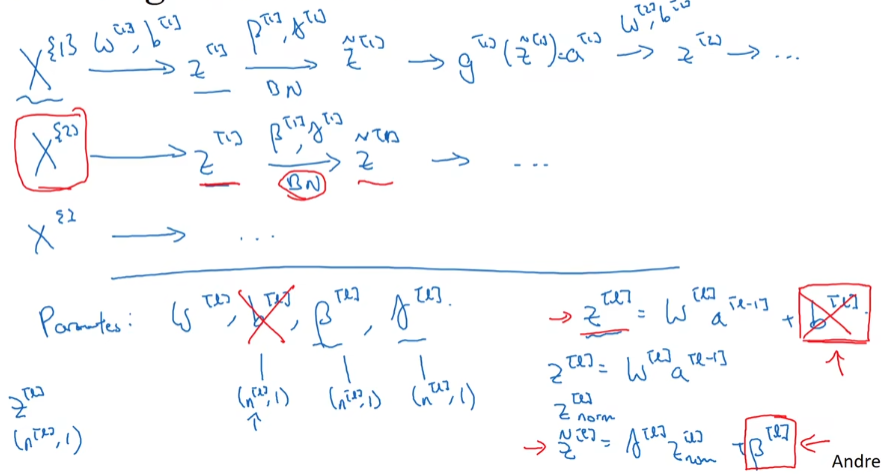 X^{1} W^[1], b^[1] → z^[1] β^[1], γ^[1] BN → z̃^[1] → g^[1](z̃^[1]) = a^[1] → W^[2], b^[2] z^[2] → ...
X^{2} → z^[1] β^[1], γ^[1] BN → z̃^[1] → ...
X^{3} → ...
Parameters: W^[l], b^[l], β^[l], γ^[l].
(n^[l], 1) (n^[l], 1) (n^[l], 1)
z^[l]
(n^[l], 1)
→ z^[l] = W^[l] a^[l-1] + b^[l]
z^[l] = W^[l] a^[l-1]
z^[l]_norm
→ z̃^[l] = γ^[l] z^[l]_norm + β^[l] ←
Andre